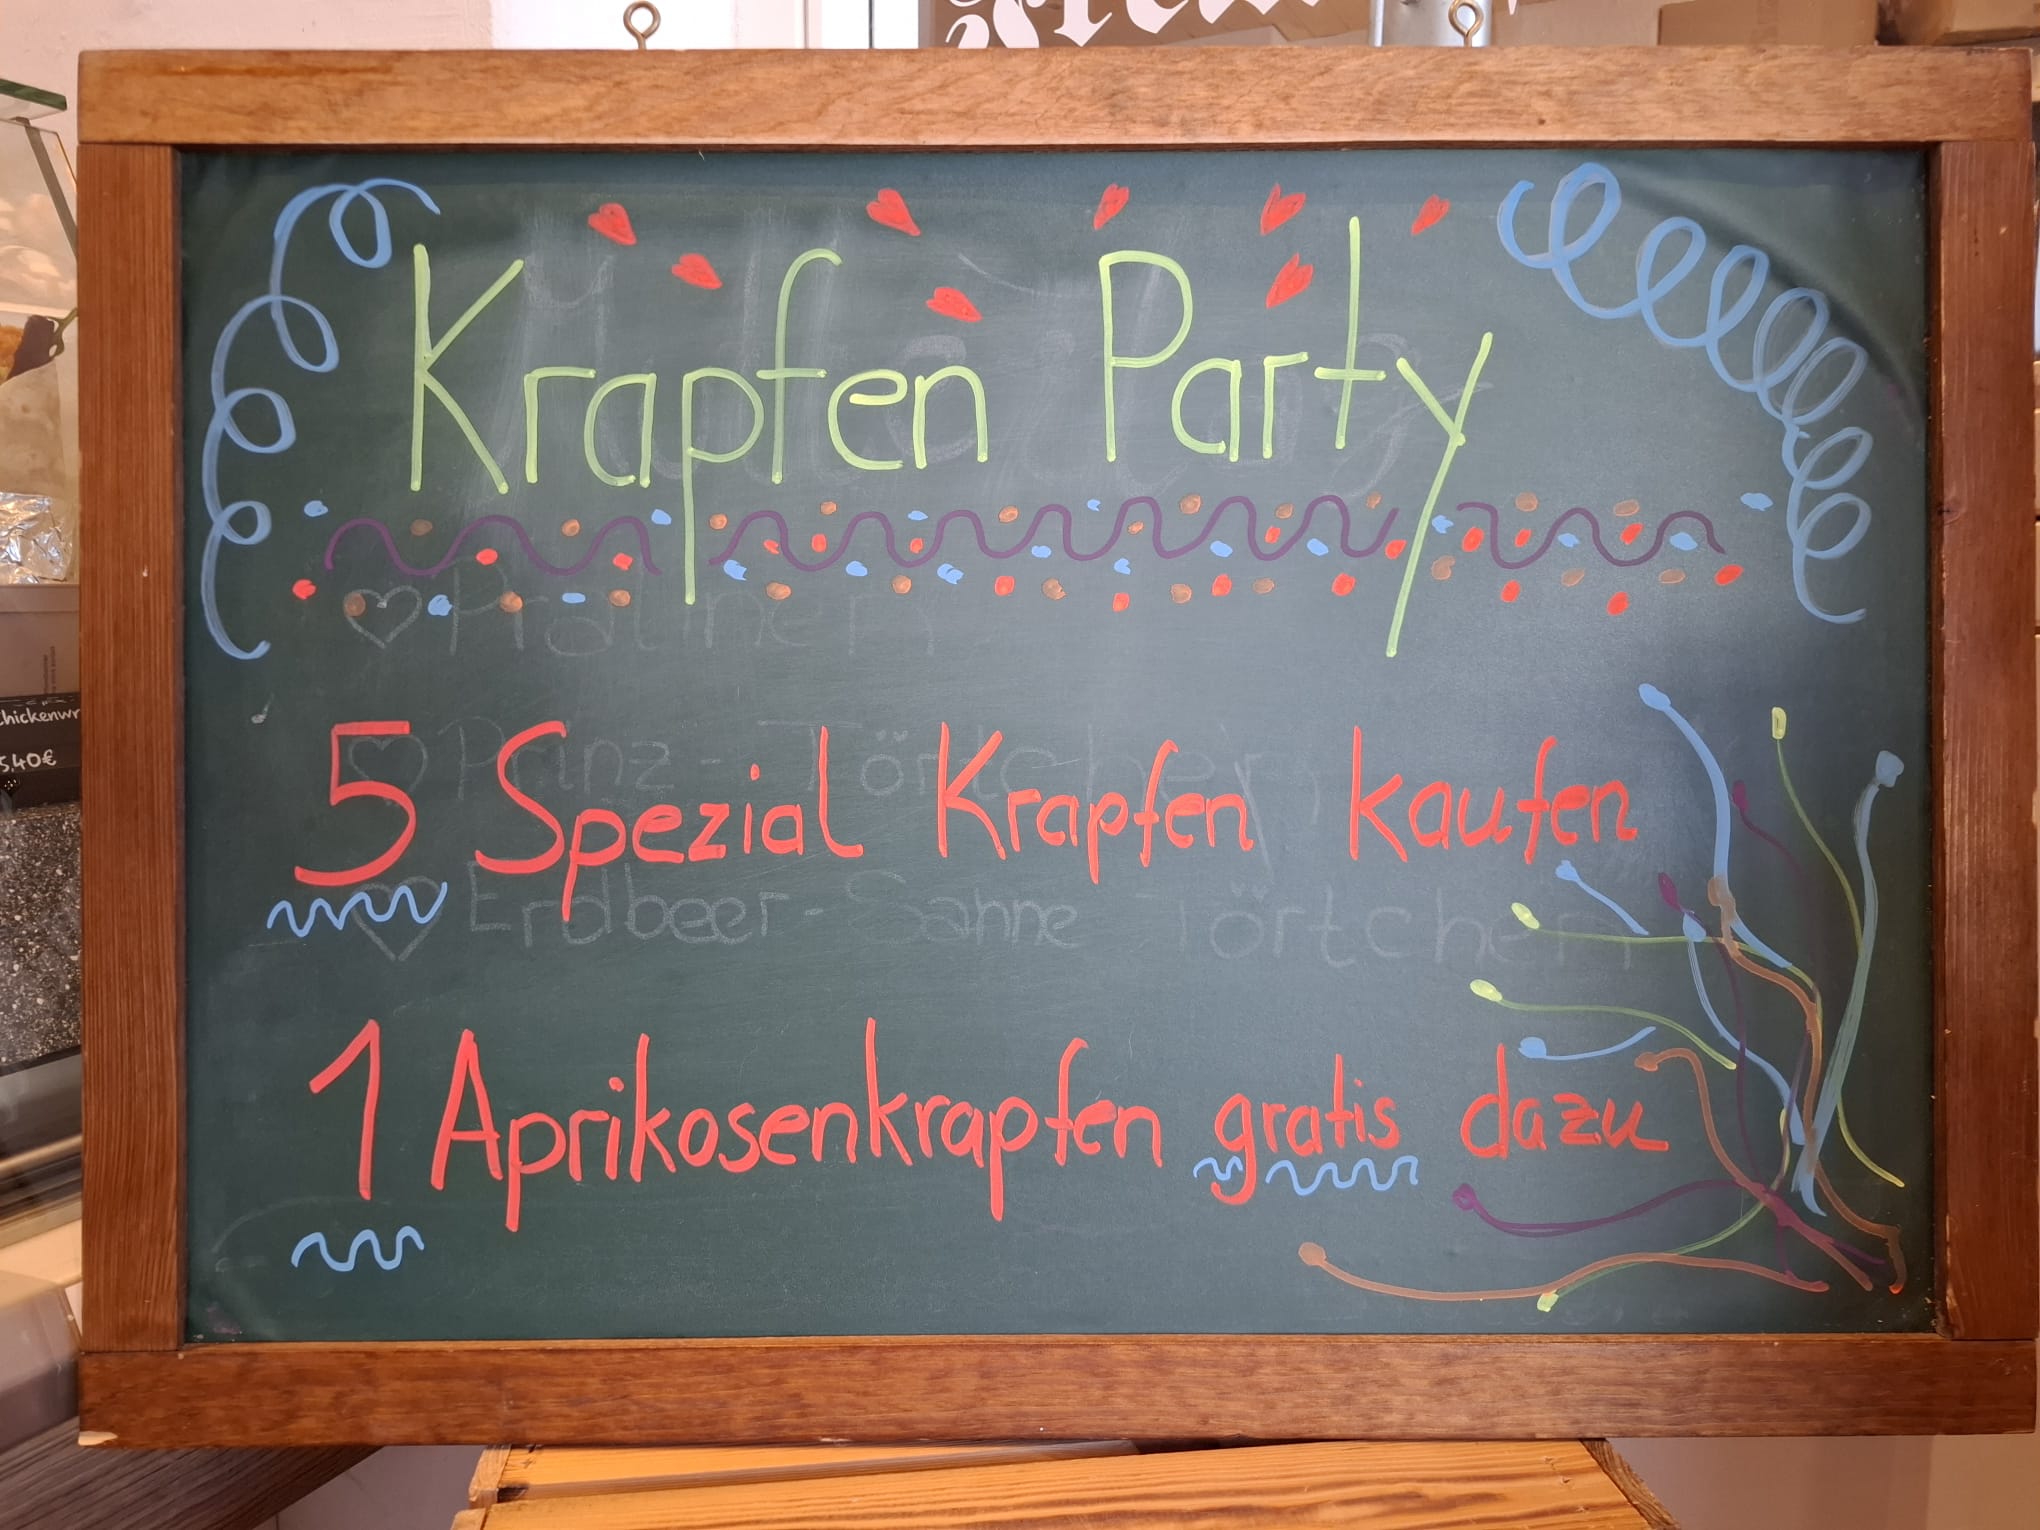 Krapfen Party
Pralinen
5 Spezial Krapfen kaufen
Prinz - Törtchen
Erdbeer - Sahne Törtchen
1 Aprikosenkrapfen gratis dazu
5,40€